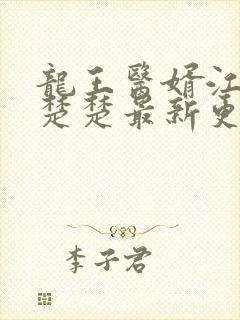 龍王醫婿江
楚楚最新更
李子君